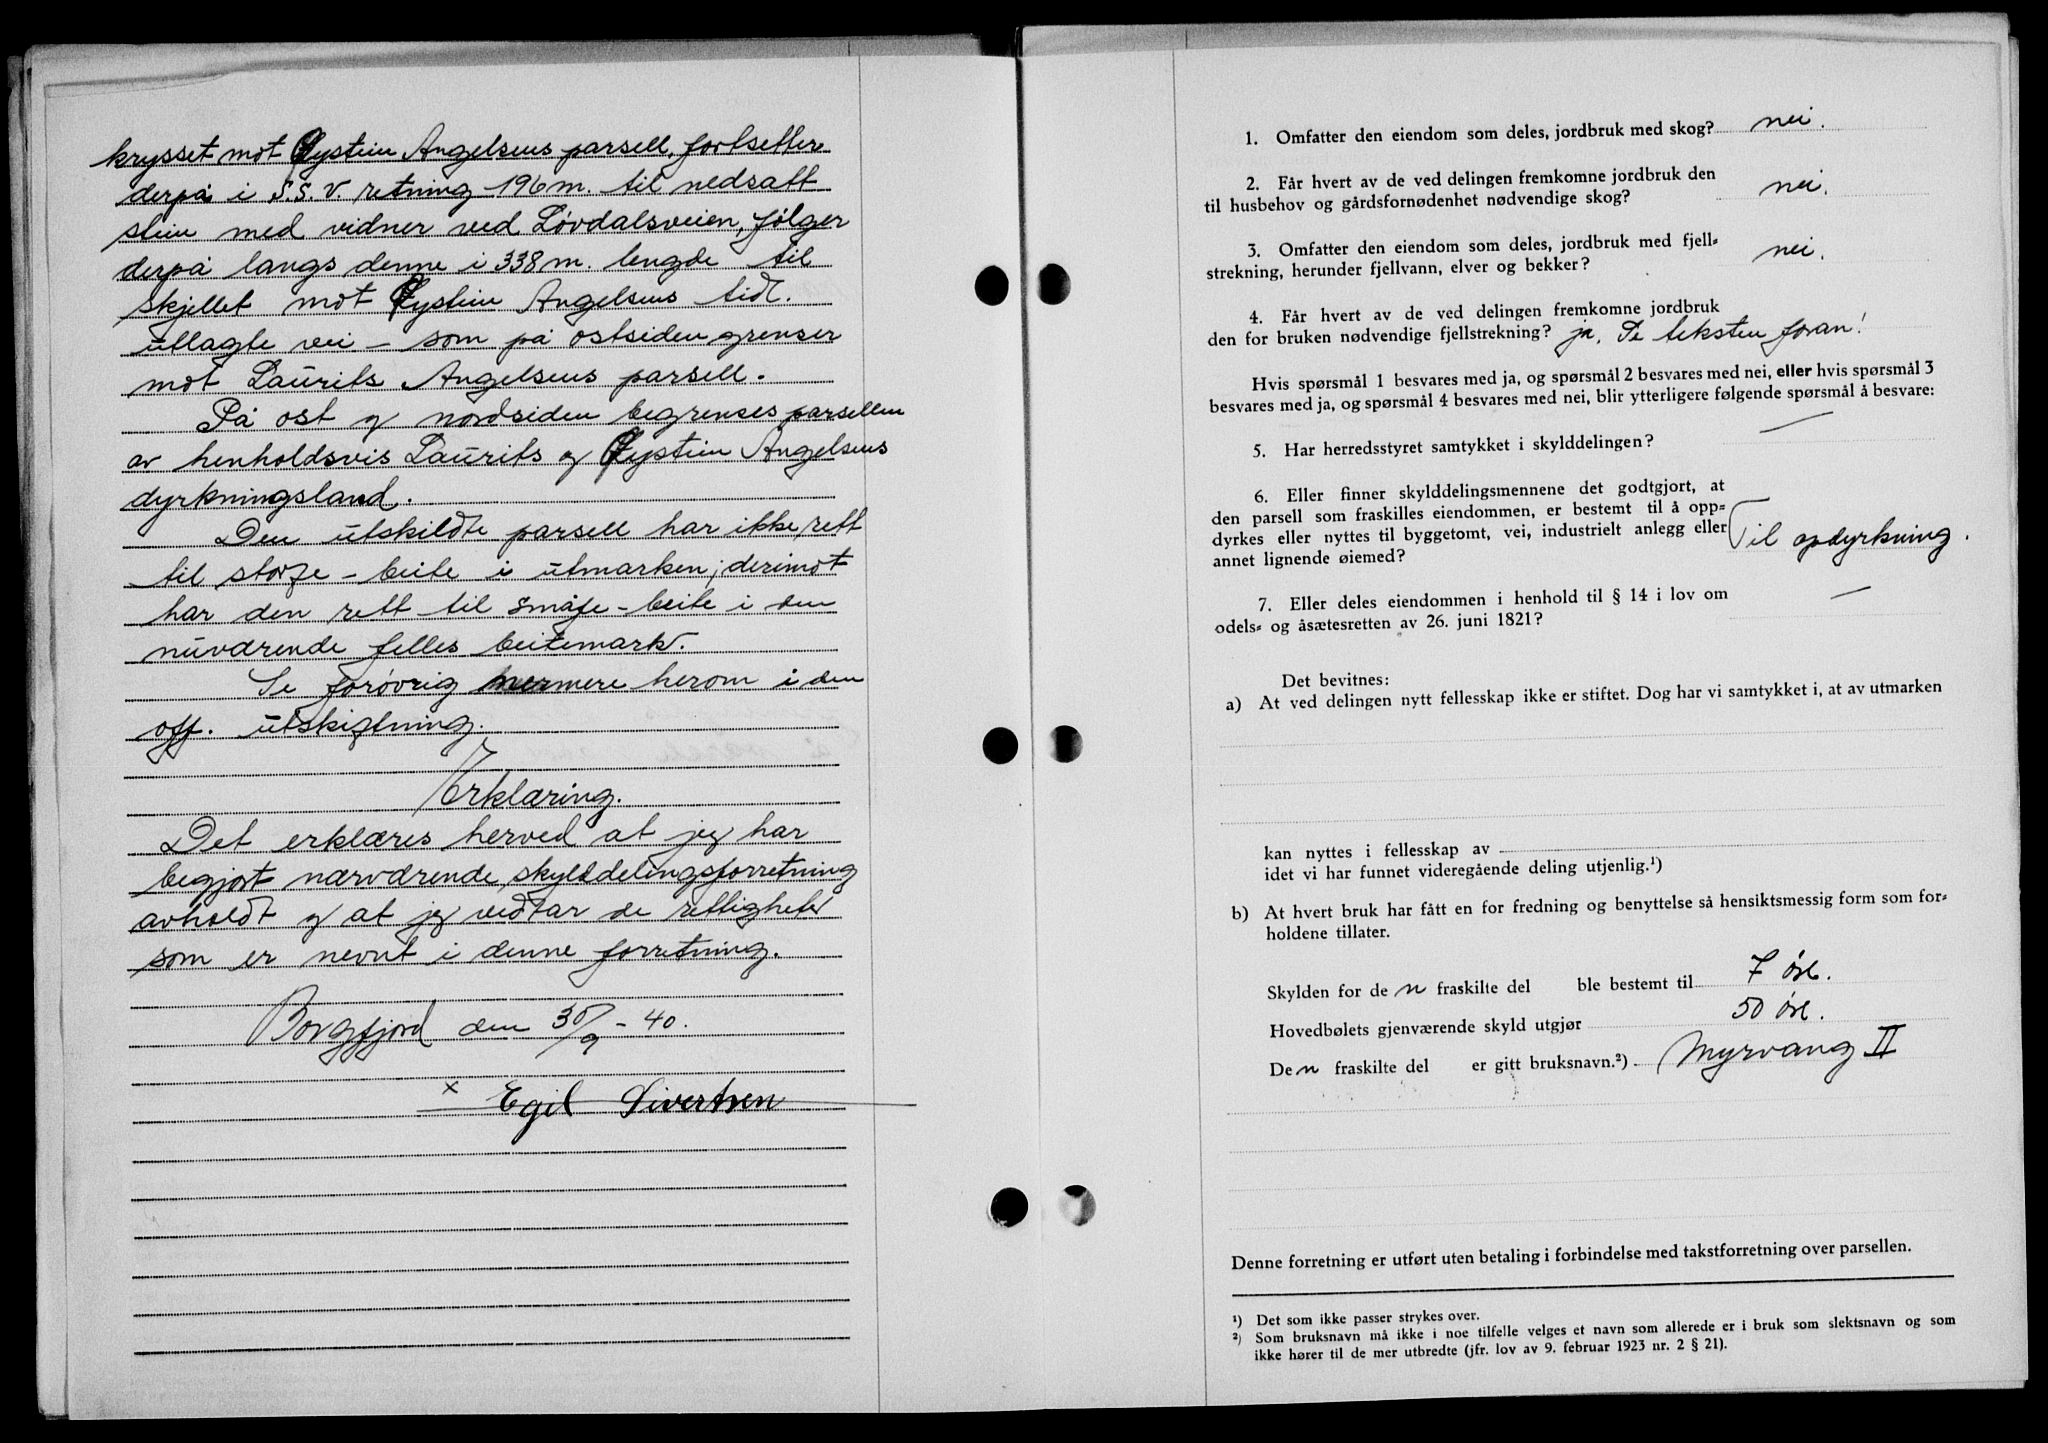 krysset mot Øystein Angelsens parsell, fortsetter
derpå i S.S.V. retning 196 m. til nedsatt
stein med vidner ved Løvdalsveien, følger
derpå langs denne i 338 m. lengde til
skjellet mot Øystein Angelsens tidl.
utlagte vei – som på ostsiden grenser
mot Laurits Angelsens parsell.
På ost og nordsiden begrenses parsellen
av henholdsvis Laurits og Øystein Angelsens
dyrkningsland.
Den utskildte parsell har ikke rett
til storfe-beite i utmarken; derimot
har den rett til småfe-beite i den
nuværende felles beitemark.
Se forøvrig nermere herom i den
off. utskiftning.
Erklæring.
Det erklæres herved at jeg har
begjært nærværende skylddelingsforretning
avholdt og at jeg vedtar de rettigheter
som er nevnt i denne forretning.
Borgfjord den 30/9 - 40.
x Egil Sivertsen
1. Omfatter den eiendom som deles, jordbruk med skog? nei.
2. Får hvert av de ved delingen fremkomne jordbruk den
til husbehov og gårdsfornødenhet nødvendige skog? nei.
3. Omfatter den eiendom som deles, jordbruk med fjell-
strekning, herunder fjellvann, elver og bekker? nei.
4. Får hvert av de ved delingen fremkomne jordbruk
den for bruken nødvendige fjellstrekning? ja, Se teksten foran!
Hvis spørsmål 1 besvares med ja, og spørsmål 2 besvares med nei, eller hvis spørsmål 3
besvares med ja, og spørsmål 4 besvares med nei, blir ytterligere følgende spørsmål å besvare:
5. Har herredsstyret samtykket i skylddelingen? —
6. Eller finner skylddelingsmennene det godtgjort, at
den parsell som fraskilles eiendommen, er bestemt til å opp-
dyrkes eller nyttes til byggetomt, vei, industrielt anlegg eller
annet lignende øiemed? Til opdyrkning.
7. Eller deles eiendommen i henhold til § 14 i lov om
odels- og åsætesretten av 26. juni 1821? —
Det bevitnes:
a) At ved delingen nytt fellesskap ikke er stiftet. Dog har vi samtykket i, at av utmarken
kan nyttes i fellesskap av
idet vi har funnet videregående deling utjenlig.¹)
b) At hvert bruk har fått en for fredning og benyttelse så hensiktsmessig form som for-
holdene tillater.
Skylden for den fraskilte del ble bestemt til 7 øre.
Hovedbølets gjenværende skyld utgjør 50 øre.
Den fraskilte del er gitt bruksnavn.²) Myrvang II
Denne forretning er utført uten betaling i forbindelse med takstforretning over parsellen.
¹) Det som ikke passer strykes over.
²) Som bruksnavn må ikke i noe tilfelle velges et navn som allerede er i bruk som slektsnavn og som
ikke hører til de mer utbredte (jfr. lov av 9. februar 1923 nr. 2 § 21).